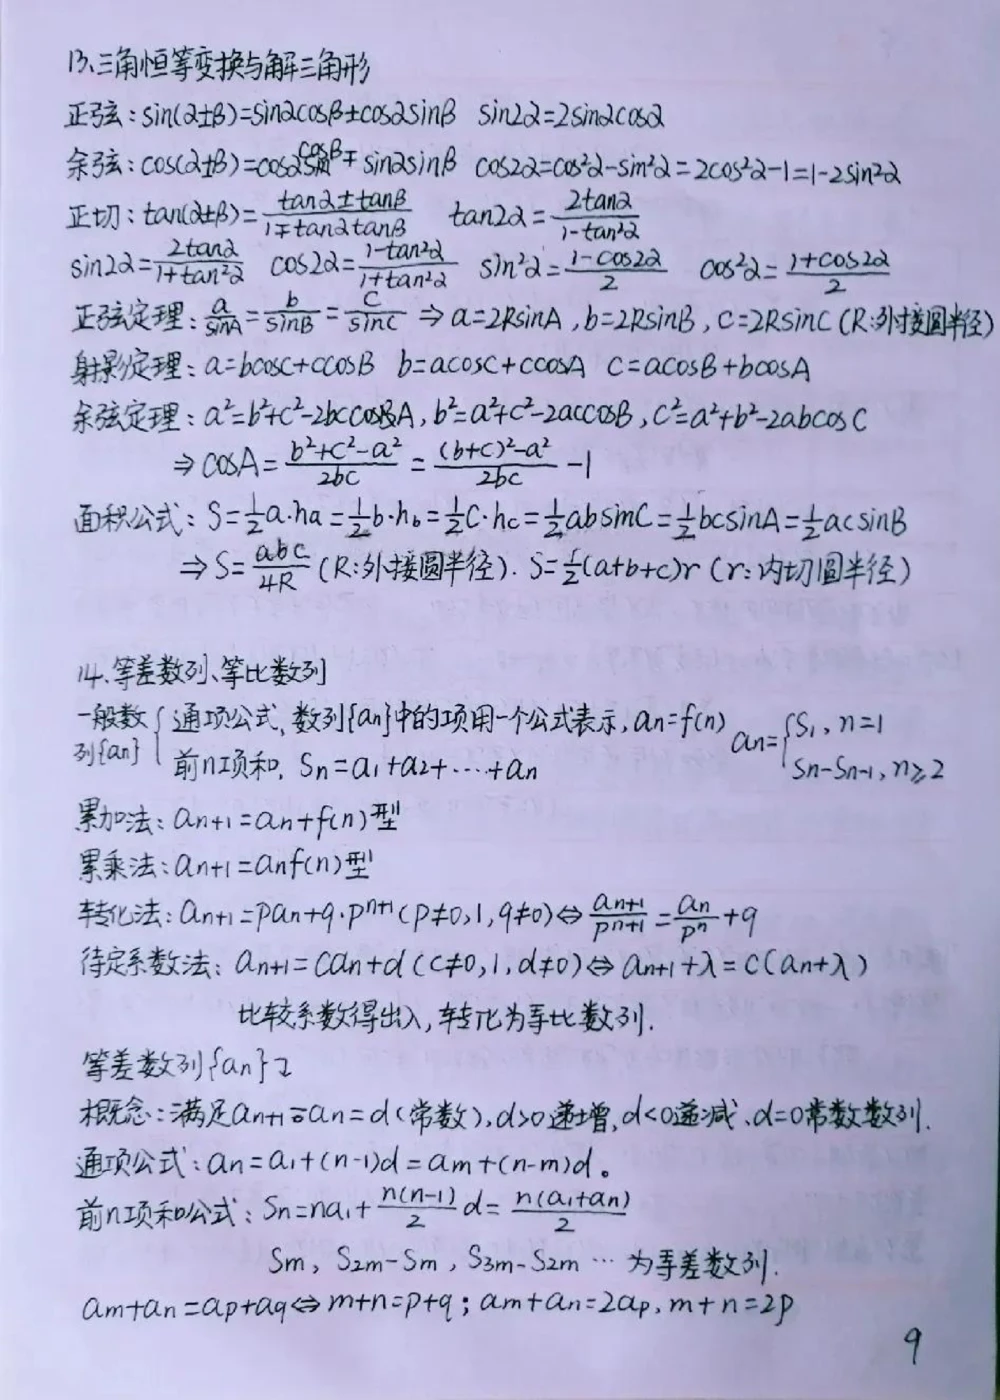 13、三角恒等变换与解三角形
正弦:sin(α±β)=sinαcosβ±cosαsinβ sin2α=2sinαcosα
余弦:cos(α±β)=cosαcosβ∓sinαsinβ cos2α=cos²α-sin²α=2cos²α-1=1-2sin²α
正切:tan(α±β)=(tanα±tanβ)/(1∓tanαtanβ) tan2α=2tanα/(1-tan²α)
sin2α=2tanα/(1+tan²α) cos2α=(1-tan²α)/(1+tan²α) sin²α=(1-cos2α)/2 cos²α=(1+cos2α)/2
正弦定理:a/sinA=b/sinB=c/sinC⇒a=2RsinA,b=2RsinB,c=2RsinC(R:外接圆半径)
射影定理:a=bcosc+ccosB b=acosc+ccosA c=acosB+bcosA
余弦定理:a²=b²+c²-2bccosA,b²=a²+c²-2accosB,c²=a²+b²-2abcosC
⇒cosA=(b²+c²-a²)/2bc=((b+c)²-a²)/2bc-1
面积公式:S=½a·ha=½b·hb=½c·hc=½absinC=½bcsinA=½acsinB
⇒S=abc/4R(R:外接圆半径).S=½(a+b+c)r(r:内切圆半径)
14.等差数列、等比数列
一般数列{an}{通项公式,数列{an}中的项用一个公式表示,an=f(n) an={S1,n=1
前n项和,Sn=a1+a2+···+an Sn-Sn-1,n≥2
累加法:an+1=an+f(n)型
累乘法:an+1=anf(n)型
转化法:an+1=pan+q·pⁿ⁺¹(p≠0,1,q≠0)⇔an+1/pⁿ⁺¹=an/pⁿ+q
待定系数法:an+1=can+d(c≠0,1,d≠0)⇔an+1+λ=c(an+λ)
比较系数得出入,转化为等比数列.
等差数列{an}
概念:满足an+1-an=d(常数),d>0递增,d<0递减、d=0常数数列.
通项公式:an=a1+(n-1)d=am+(n-m)d。
前n项和公式:Sn=na1+n(n-1)/2 d=n(a1+an)/2
Sm,S2m-Sm,S3m-S2m···为等差数列.
am+an=ap+aq⇔m+n=p+q;am+an=2ap,m+n=2p
9